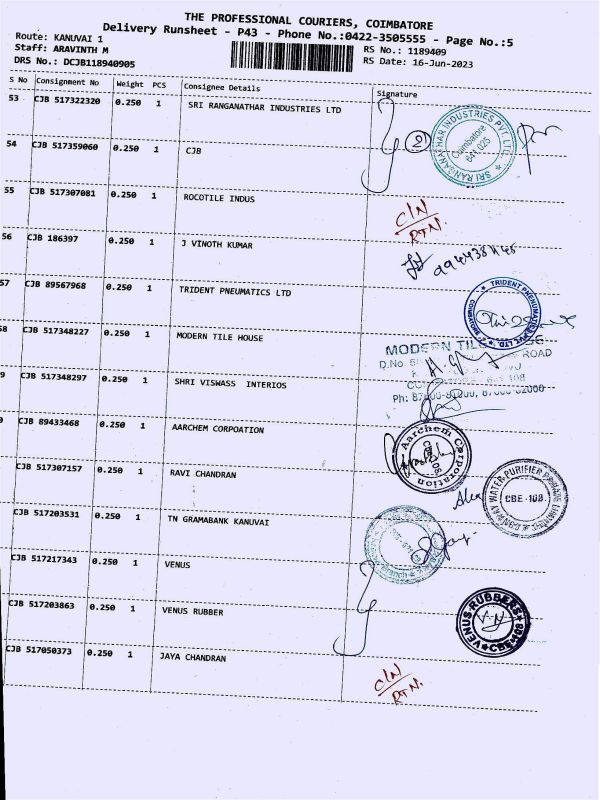 THE PROFESSIONAL COURIERS, COIMBATORE
Delivery Runsheet - P43 - Phone No.:0422-3505555 - Page No.:5
Route: KANUVAI 1
RS No.: 1189409
Staff: ARAVINTH M
RS Date: 16-Jun-2023
DRS No.: DCJB118940905
S No Consignment No Weight PCS Consignee Details Signature
53 CJB 517322320 0.250 1 SRI RANGANATHAR INDUSTRIES LTD
2
SRI RANGANATHAR INDUSTRIES PVT. LTD.
Coimbatore
641 025
54 CJB 517359060 0.250 1 CJB
55 CJB 517307081 0.250 1 ROCOTILE INDUS
C/N
RTN.
56 CJB 186397 0.250 1 J VINOTH KUMAR
57 CJB 89567968 0.250 1 TRIDENT PNEUMATICS LTD
TRIDENT PNEUMATICS PVT. LTD.
58 CJB 517348227 0.250 1 MODERN TILE HOUSE
MODERN TILE
D.No.
ROAD
9 CJB 517348297 0.250 1 SHRI VISWASS INTERIOS
Ph:
CJB 89433468 0.250 1 AARCHEM CORPOATION
Aarchem Corporation
CJB 517307157 0.250 1 RAVI CHANDRAN
WATER PURIFIER PRIVATE LIMITED
CBE -108.
CJB 517203531 0.250 1 TN GRAMABANK KANUVAI
CJB 517217343 0.250 1 VENUS
CJB 517203863 0.250 1 VENUS RUBBER
VENUS RUBBERS
CBE-108
CJB 517050373 0.250 1 JAYA CHANDRAN
C/N
RTN.